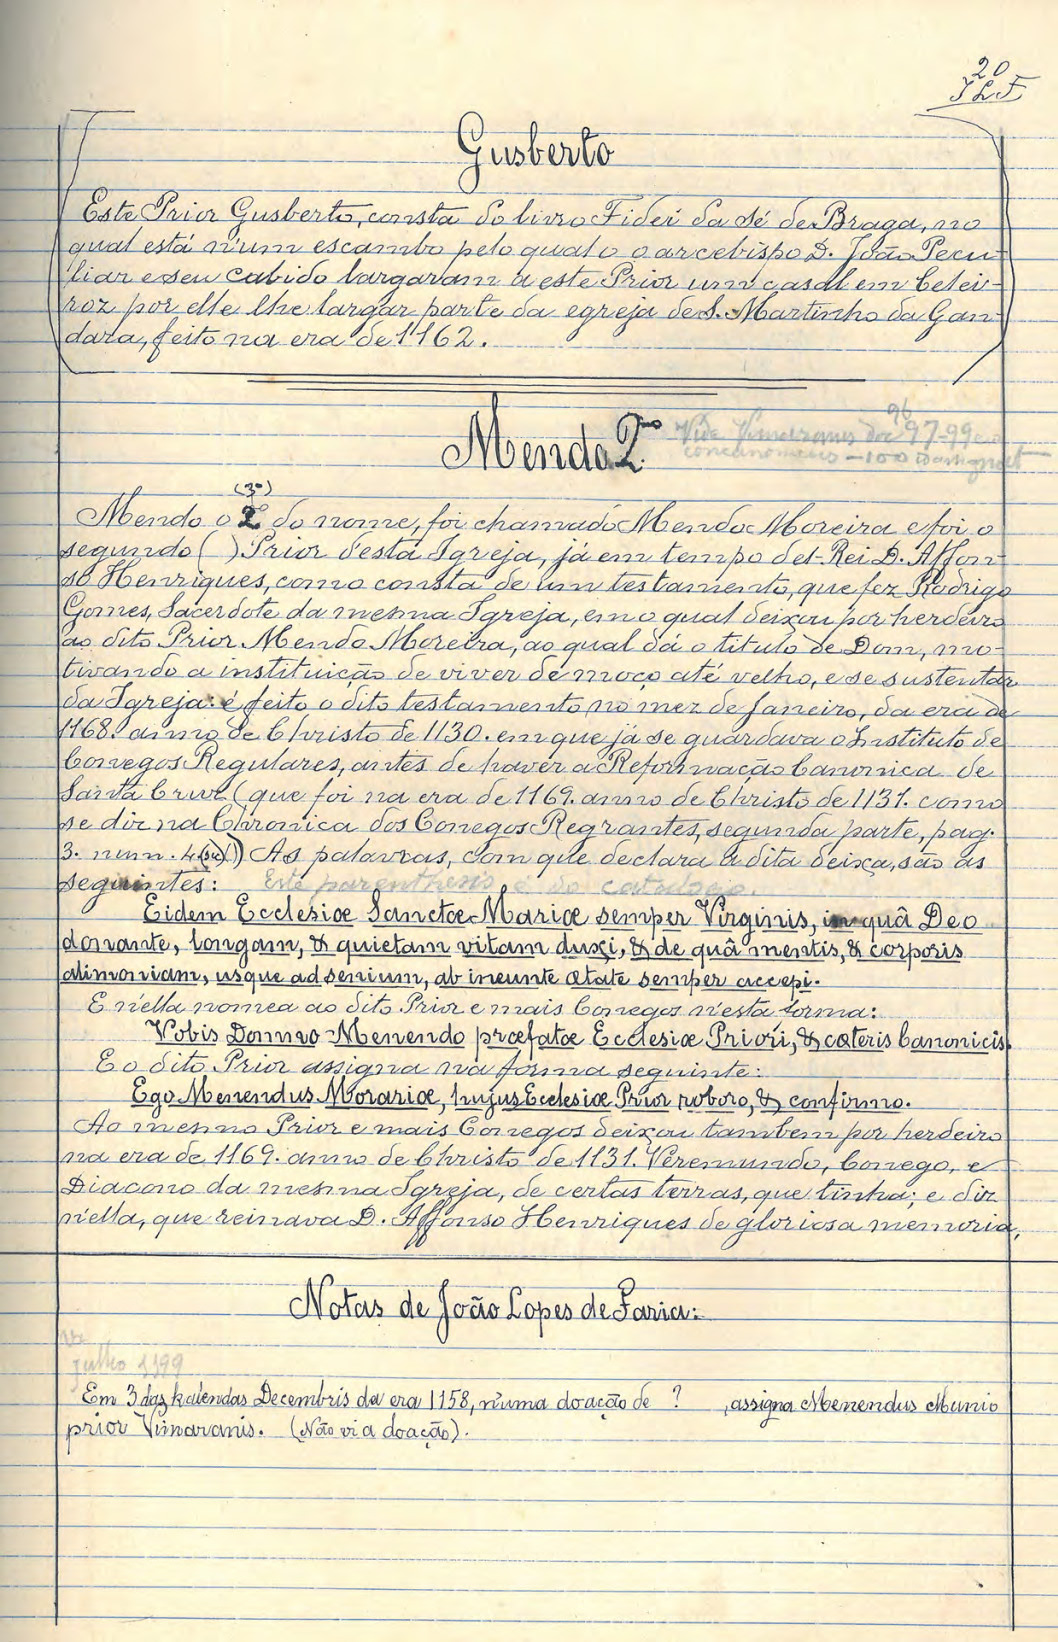 20
JLF
Gusberto
Este Prior Gusberto, consta do livro Fidei da Sé de Braga, no
qual está n'um escambo pelo qual o o arcebispo D. João Pecu-
liar e seu cabido largaram a este Prior um casal em Celei-
roz por elle lhe largar parte da egreja de S. Martinho da Gan-
dara, feito na era de 1162.
Mendo 2º
96
Vide Vimaranis doc 97-99
-100
(3º)
Mendo o 2º do nome, foi chamado Mendo Moreira e foi o
segundo ( ) Prior d'esta Igreja, já em tempo del-Rei D. Affon-
so Henriques, como consta de um testamento, que fez Rodrigo
Gomes, Sacerdote da mesma Igreja, em o qual deixou por herdeiro
ao dito Prior Mendo Moreira, ao qual dá o titulo de Dom, mo-
tivando a instituição de viver de moço até velho, e se sustentar
da Igreja: é feito o dito testamento no mez de Janeiro, da era de
1168. anno de Christo de 1130. em que já se guardava o Instituto de
Conegos Regulares, antes de haver a Reformação Canonica de
Santa Cruz (que foi na era de 1169. anno de Christo de 1131. como
se diz na Chronica dos Conegos Regrantes, segunda parte, pag.
3. num. 4 (sic)) As palavras, com que declara a dita deixa, são as
seguintes: Este parenthesis é do catalogo.
Eidem Ecclesiæ Sanctæ Mariæ semper Virginis, in quâ Deo
donante, longam, & quietam vitam duxi, & de quâ mentis, & corporis
alimoniam, usque ad senium, ab ineunte ætate semper accepi.
E n'ella nomea ao dito Prior e mais Conegos n'esta forma:
Vobis Domno Menendo præfatæ Ecclesiæ Priori, & cæteris Canonicis.
E o dito Prior assigna na forma seguinte:
Ego Menendus Morariæ, hujus Ecclesiæ Prior roboro, & confirmo.
Ao mesmo Prior e mais Conegos deixou tambem por herdeiro
na era de 1169. anno de Christo de 1131. Veremundo, Conego, e
Diacono da mesma Igreja, de certas terras, que tinha; e diz
n'ella, que reinava D. Affonso Henriques de gloriosa memoria,
Notas de João Lopes de Faria:
Julho 1199
Em 3 das kalendas Decembris da era 1158, n'uma doação de ? , assigna Menendus Munio
prior Vimaranis. (Não vi a doação).